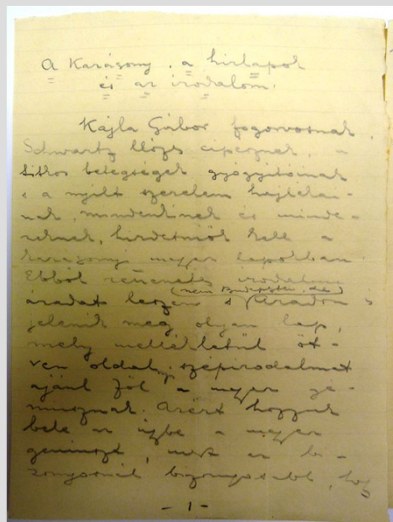 A Karácsony, a hirlapok
és az irodalom.
Kajla Gábor fogorvosnak,
Schwartz cipésznek, a
titkos betegségek gyógyitóinak
s a nyilt szerelem
mindenkinek és minde-
hirdetniök kell a
karácsonyi magyar lapokban.
Ebből rettenetes irodalmi
áradat leszen s
(nem Budapesten, de)
jelenik meg olyan lap,
mely mellékletül öt-
ven oldalnyi szépirodalmat
ajánl föl a magyar ge-
niusznak. Azért hozzuk
bele az ügybe a magyar
geniuszt, mert ez bi-
zonyosnál bizonyosabb, hogy
- 1 -